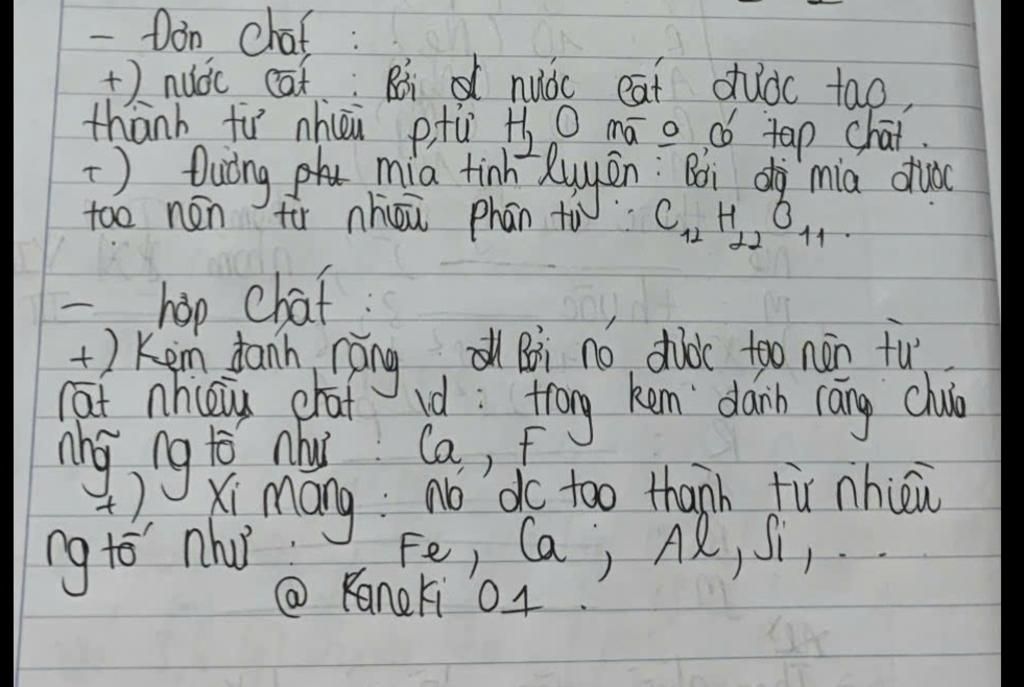 - Đơn chất :
+) nước cất : Bởi nước cất được tạo
thành từ nhiều p.tử H2O mà o có tạp chất.
+) Đường mía tinh luyện : Bởi đg mía được
tạo nên từ nhiều phân tử : C12H22O11.
- hợp chất :
+) Kem đánh răng Bởi nó được tạo nên từ
rất nhiều chất vd : trong kem đánh răng chứa
nhg ng tố như : Ca, F
+) Xi măng : nó đc tạo thành từ nhiều
ng tố như : Fe, Ca, Al, Si, ...
@ Kaneki 01.